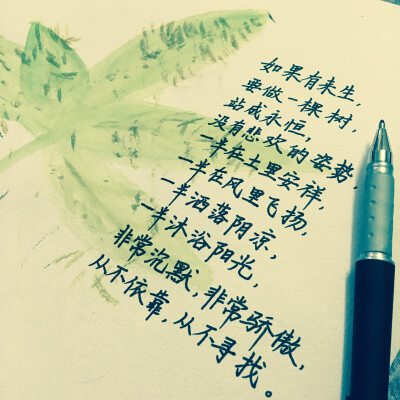 如果有来生，
要做一棵树，
站成永恒，
没有悲欢的姿势，
一半在土里安祥，
一半在风里飞扬，
一半洒落阴凉，
一半沐浴阳光，
非常沉默，非常骄傲，
从不依靠，从不寻找。